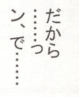 だから
……っ
ン、で……